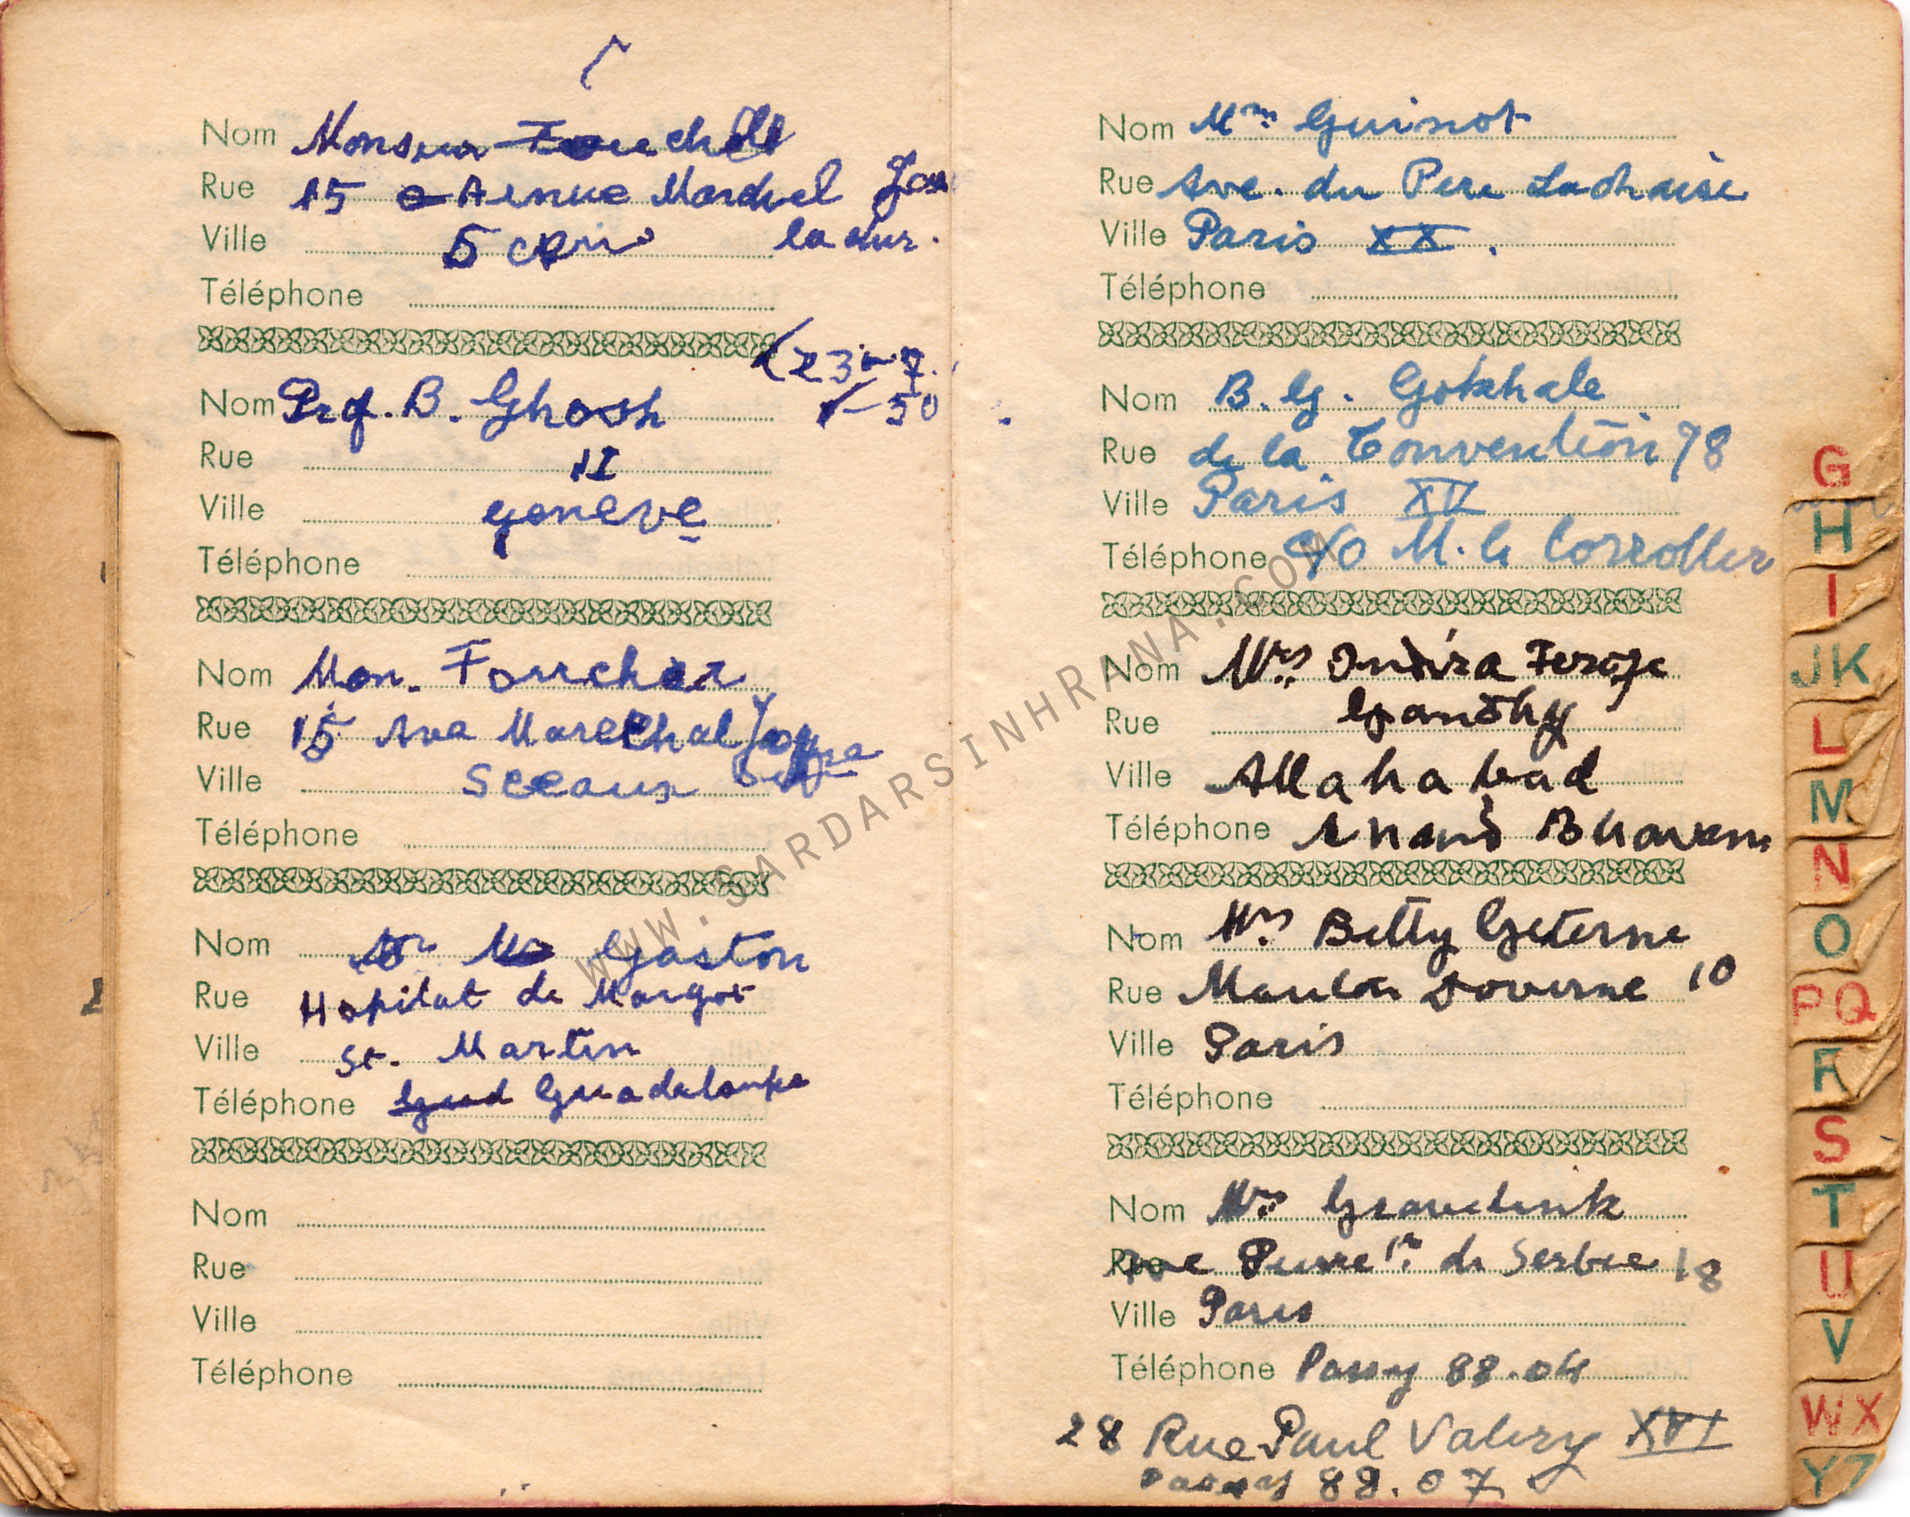 Nom Monsieur
Rue 15 Avenue
Ville
la
Téléphone
23 - 7.
- 50
Nom Prof. B. Ghosh
Rue II
Ville genève
Téléphone
Nom Mon. Fourchet
Rue 15 Ave Marechal Joffre
Ville Sceaux
Téléphone
Nom Gaston
Rue Hopital de
Ville St. Martin
Téléphone Guadeloupe
Nom
Rue
Ville
Téléphone
Nom Mme Guinot
Rue Ave. du Pere Lachaise
Ville Paris XX.
Téléphone
Nom B. G. Gokhale
Rue de la Convention 78
Ville Paris XV
Téléphone c/o M. le Corroller
Nom Mrs Indira Feroze
Rue Gandhy
Ville Allahabad
Téléphone Anand Bhawan
Nom Mrs Betty
Rue 10
Ville Paris
Téléphone
Nom
Rue Pierre 1er de Serbie 18
Ville Paris
Téléphone Passy 88.04
28 Rue Paul Valery XVI
Passy 88.07
G
H
I
JK
L
M
N
O
PQ
R
S
T
U
V
WX
YZ
WWW.SARDARSINHRANA.COM